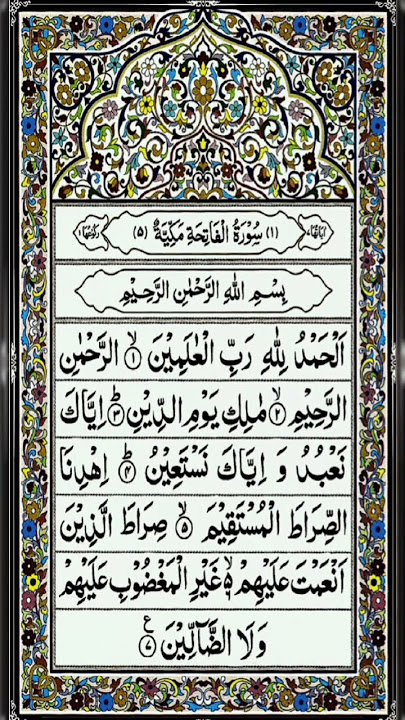 اٰيَاتُهَا ٧ (١) سُوْرَةُ الْفَاتِحَةِ مَكِّيَّةٌ (٥) رُكُوْعُهَا ١
بِسْمِ اللهِ الرَّحْمٰنِ الرَّحِيْمِ
اَلْحَمْدُ لِلّٰهِ رَبِّ الْعٰلَمِيْنَ ۙ﴿١﴾ الرَّحْمٰنِ
الرَّحِيْمِ ۙ﴿٢﴾ مٰلِكِ يَوْمِ الدِّيْنِ ؕ﴿٣﴾ اِيَّاكَ
نَعْبُدُ وَ اِيَّاكَ نَسْتَعِيْنُ ؕ﴿۴﴾ اِهْدِنَا
الصِّرَاطَ الْمُسْتَقِيْمَ ۙ﴿۵﴾ صِرَاطَ الَّذِيْنَ
اَنْعَمْتَ عَلَيْهِمْ ۙ۵ غَيْرِ الْمَغْضُوْبِ عَلَيْهِمْ
وَلَا الضَّآلِّيْنَ ﴿٧﴾ ع